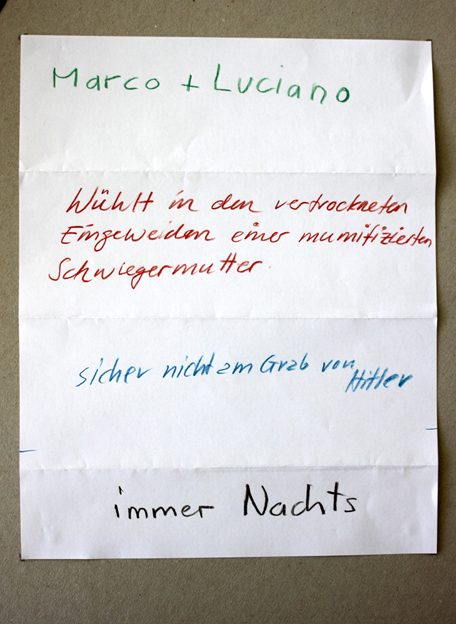 Marco + Luciano
Wühlt in den vertrockneten
Eingeweiden einer mumifizierten
Schwiegermutter.
sicher nicht am Grab von
Hitler
immer Nachts